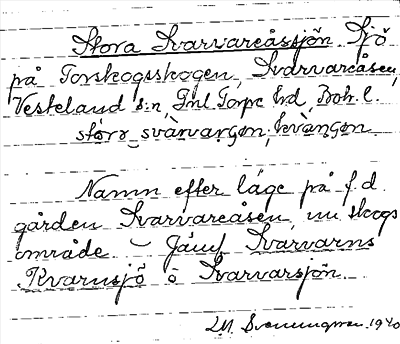 Stora Svarvareåssjön Sjö
på Torskogsskogen, Svarvareåsen,
Västerland s:n, Inl Torpe hd, Boh. l.
störe svarvargen,
Namn efter läge på f.d.
gården Svarvareåsen, nu skogs
område – Jämf Svarvarns
Kvarnsjö o Svarvarsjön.
1940